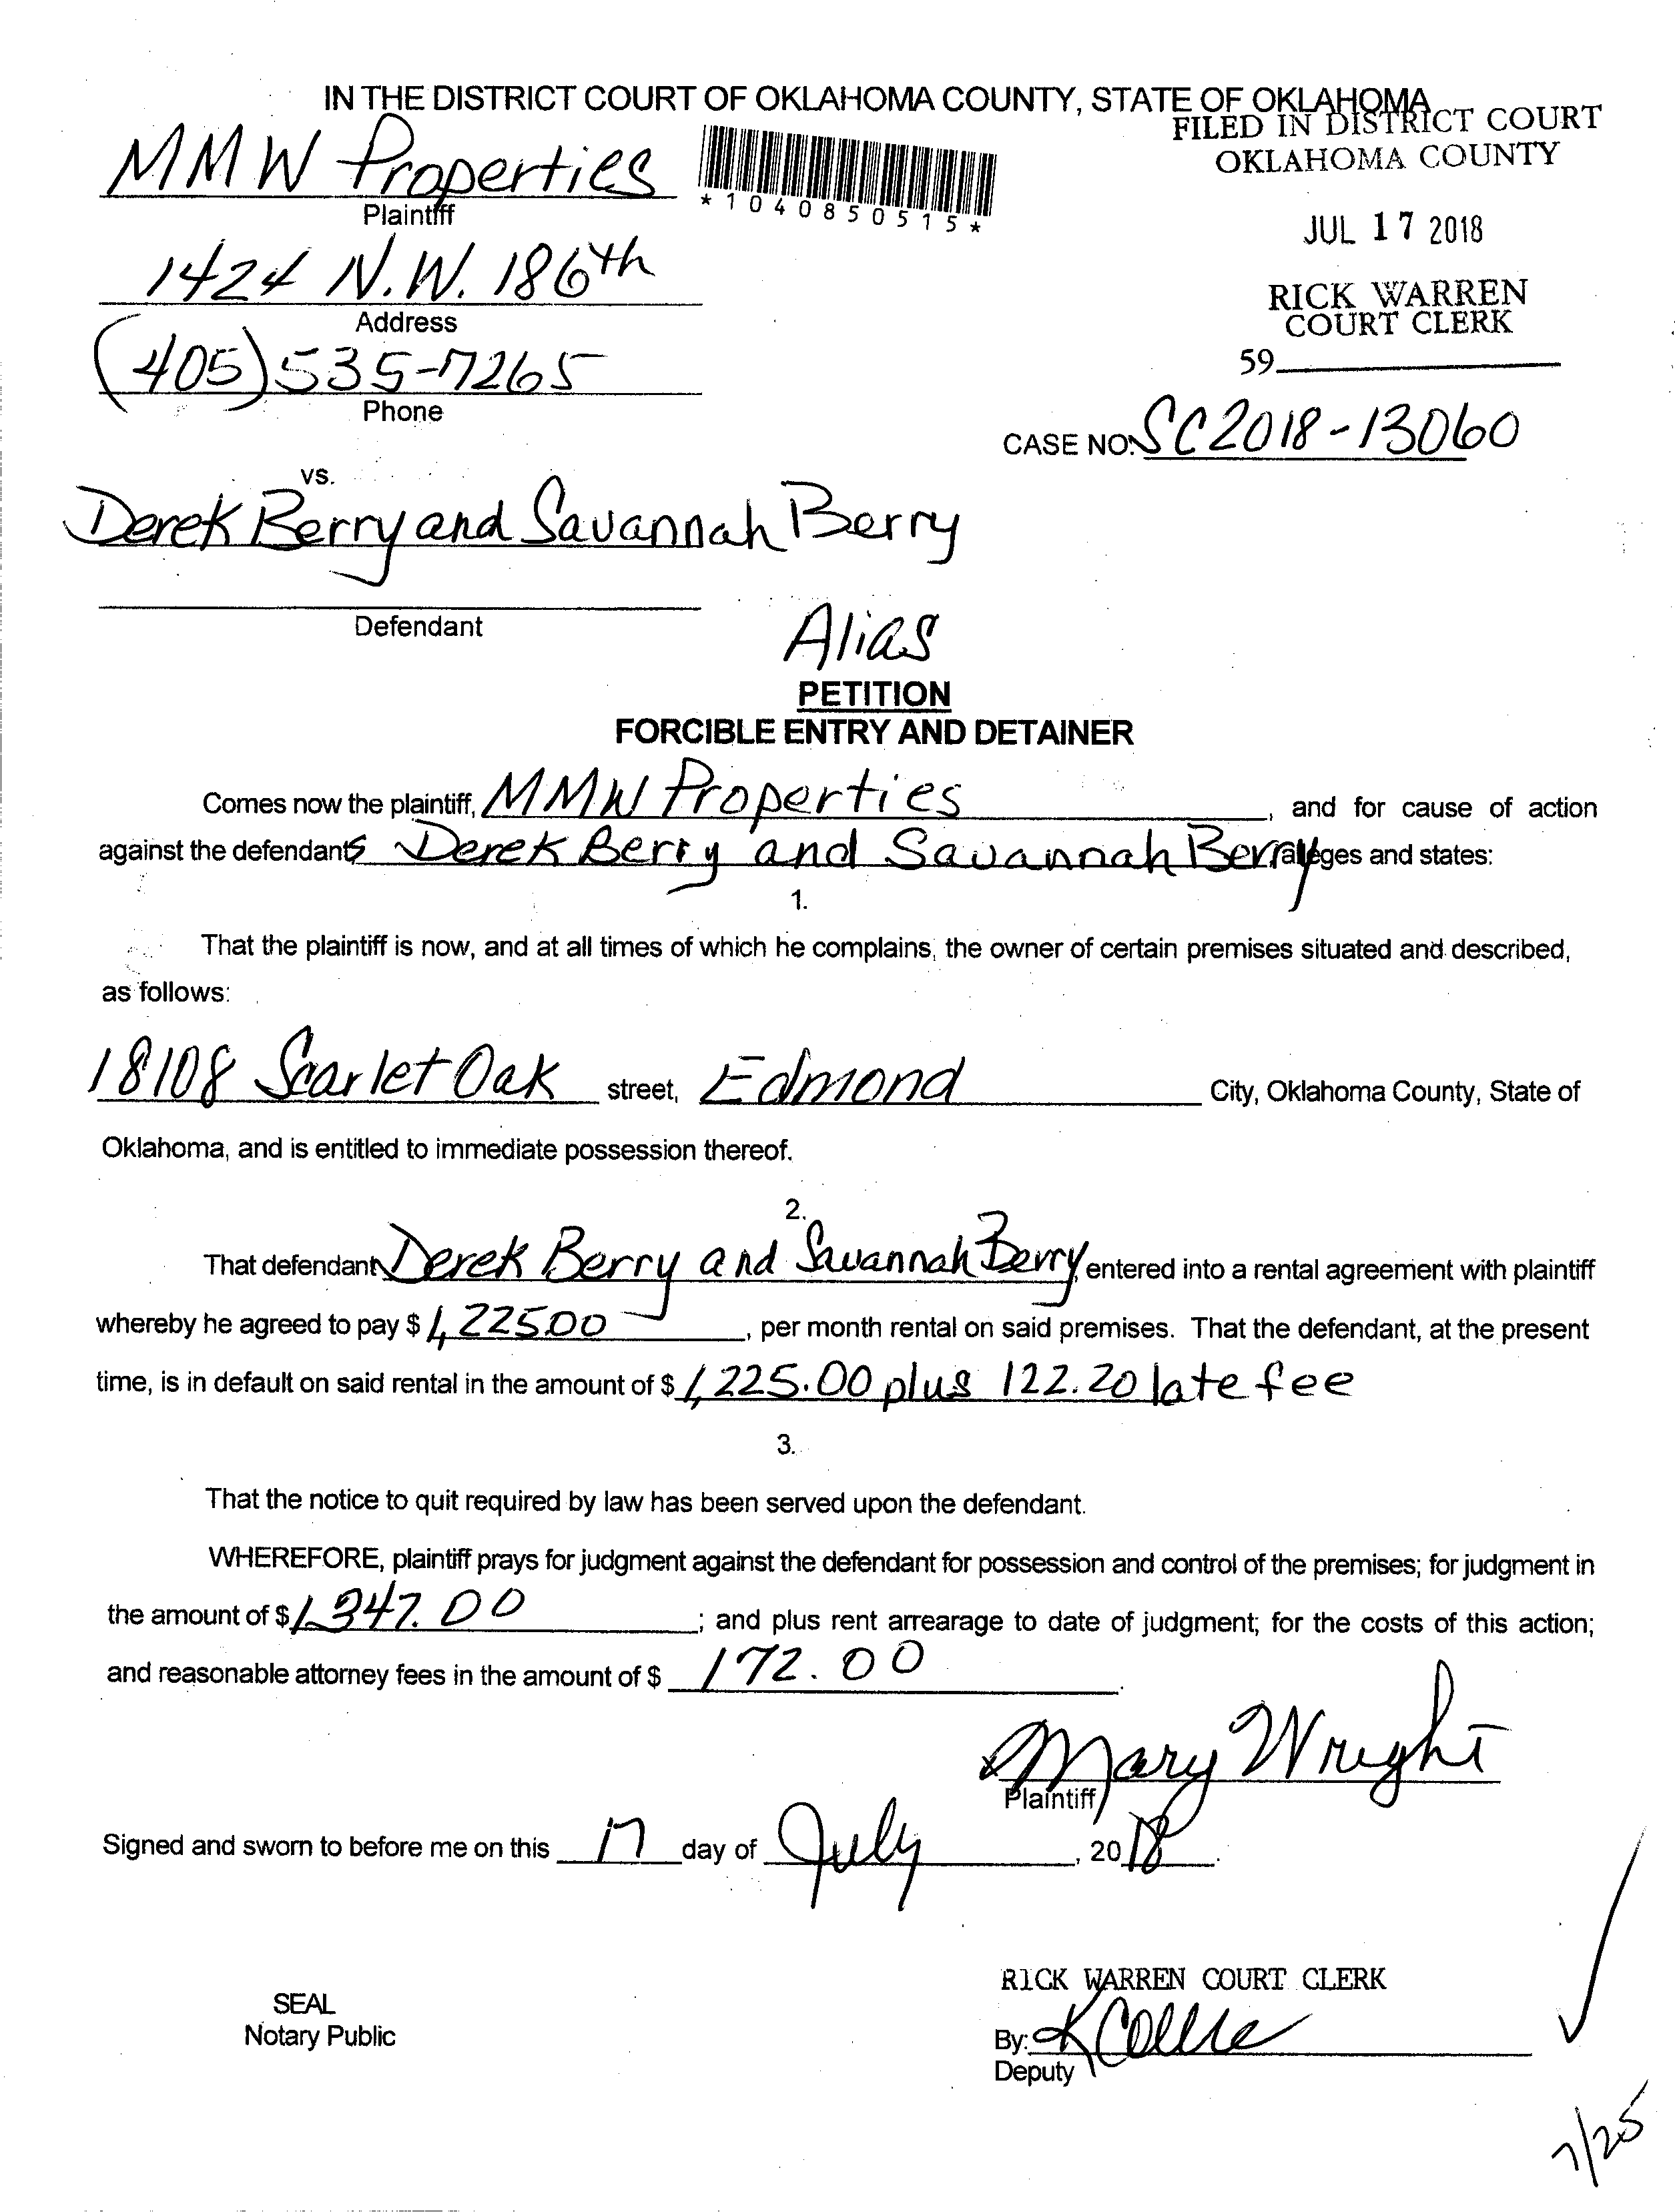 IN THE DISTRICT COURT OF OKLAHOMA COUNTY, STATE OF OKLAHOMA
FILED IN DISTRICT COURT
OKLAHOMA COUNTY
MMW Properties
Plaintiff
*1040850515*
JUL 17 2018
1424 N.W. 186th
Address
RICK WARREN
COURT CLERK
(405) 535-7265
Phone
59
CASE NO. SC2018-13060
vs.
Derek Berry and Savannah Berry
Defendant
Alias
PETITION
FORCIBLE ENTRY AND DETAINER
Comes now the plaintiff, MMW Properties, and for cause of action
against the defendants Derek Berry and Savannah Berry alleges and states:
1.
That the plaintiff is now, and at all times of which he complains, the owner of certain premises situated and described,
as follows:
18108 Scarlet Oak street, Edmond City, Oklahoma County, State of
Oklahoma, and is entitled to immediate possession thereof.
2.
That defendant Derek Berry and Savannah Berry, entered into a rental agreement with plaintiff
whereby he agreed to pay $ 1,225.00, per month rental on said premises. That the defendant, at the present
time, is in default on said rental in the amount of $ 1,225.00 plus 122.20 late fee
3.
That the notice to quit required by law has been served upon the defendant.
WHEREFORE, plaintiff prays for judgment against the defendant for possession and control of the premises; for judgment in
the amount of $ 1,347.00; and plus rent arrearage to date of judgment; for the costs of this action;
and reasonable attorney fees in the amount of $ 172.00.
x Mary Wright
Plaintiff
Signed and sworn to before me on this 17 day of July, 2018.
RICK WARREN COURT CLERK
SEAL
Notary Public
By:
Deputy
7/25